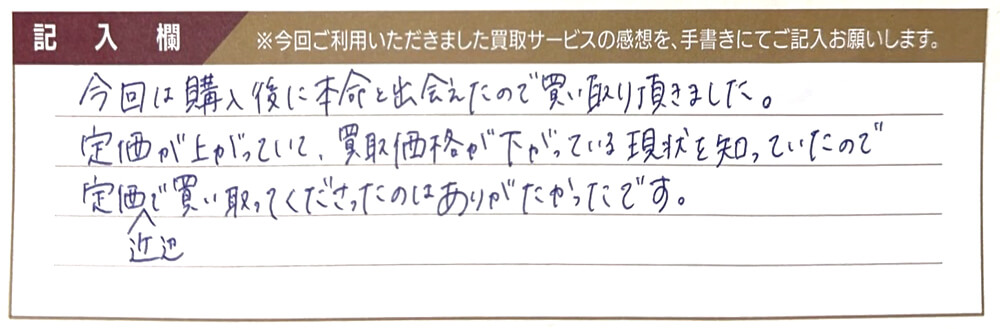 記入欄 ※今回ご利用いただきました買取サービスの感想を、手書きにてご記入お願いします。
今回は購入後に本命と出会えたので買い取り頂きました。
定価が上がっていて、買取価格が下がっている現状を知っていたので
定価で買い取ってくださったのはありがたかったです。
近辺